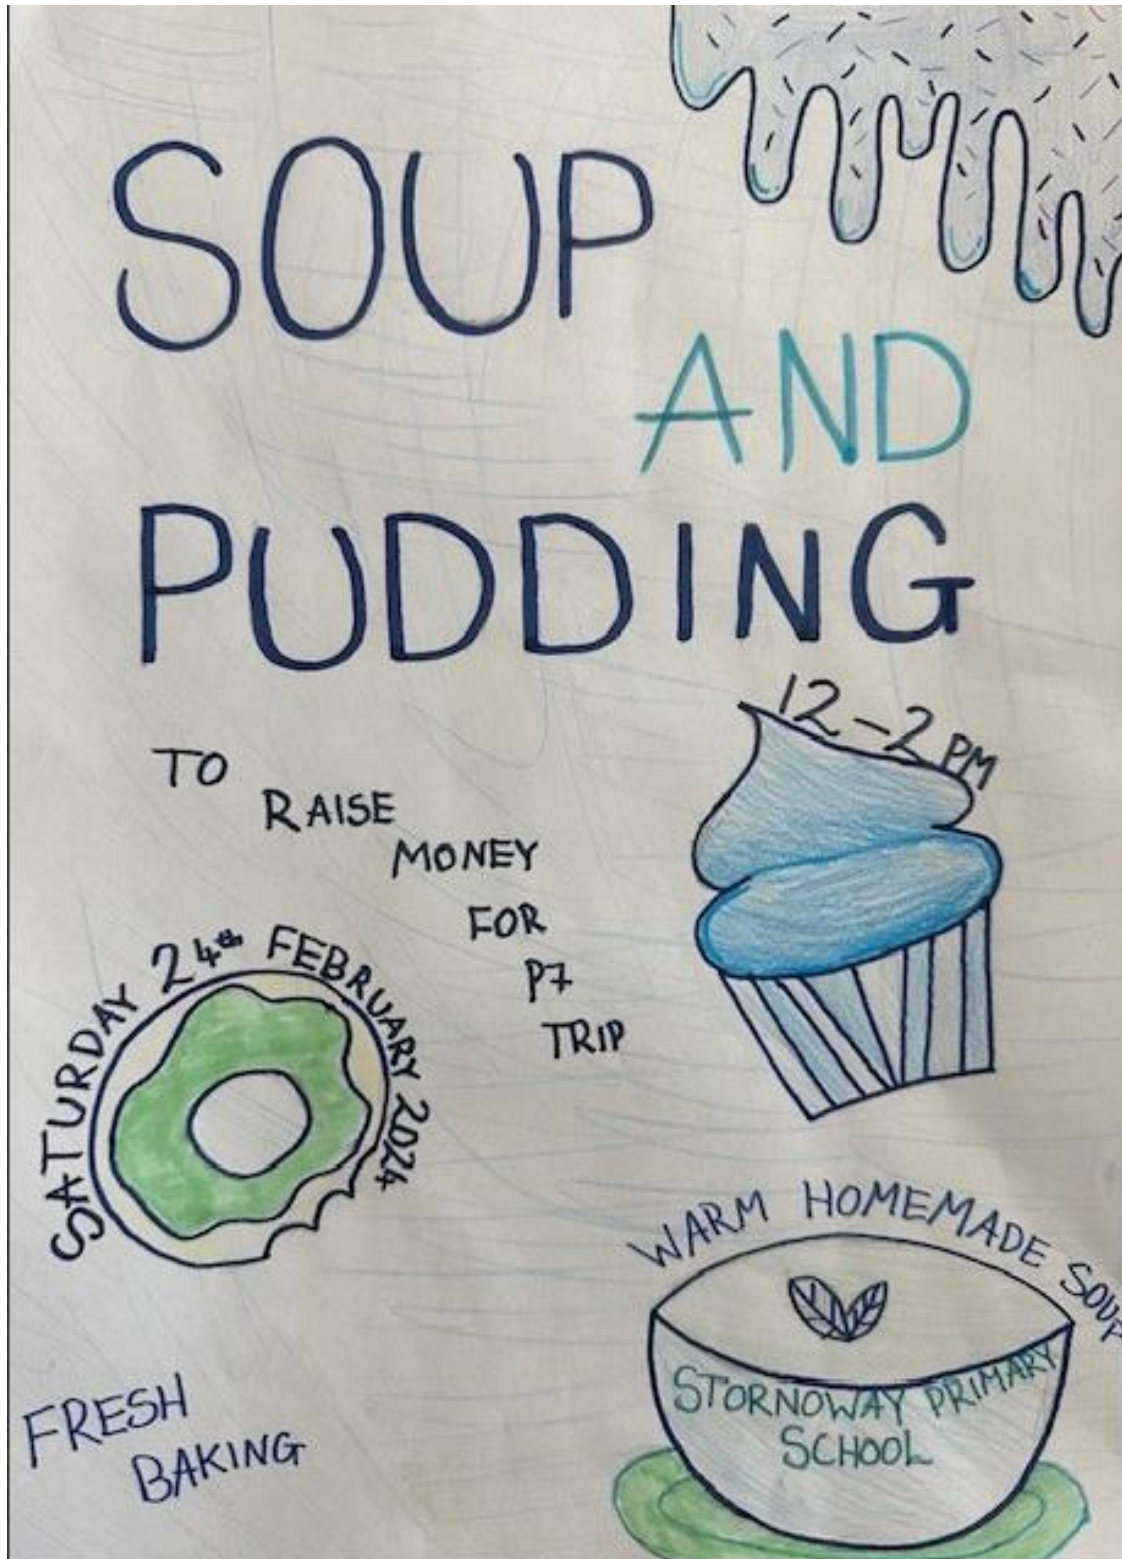 SOUP
AND
PUDDING
12-2PM
TO
RAISE
MONEY
FOR
P7
TRIP
SATURDAY 24th FEBRUARY 2024
WARM HOMEMADE SOUP
STORNOWAY PRIMARY
SCHOOL
FRESH
BAKING